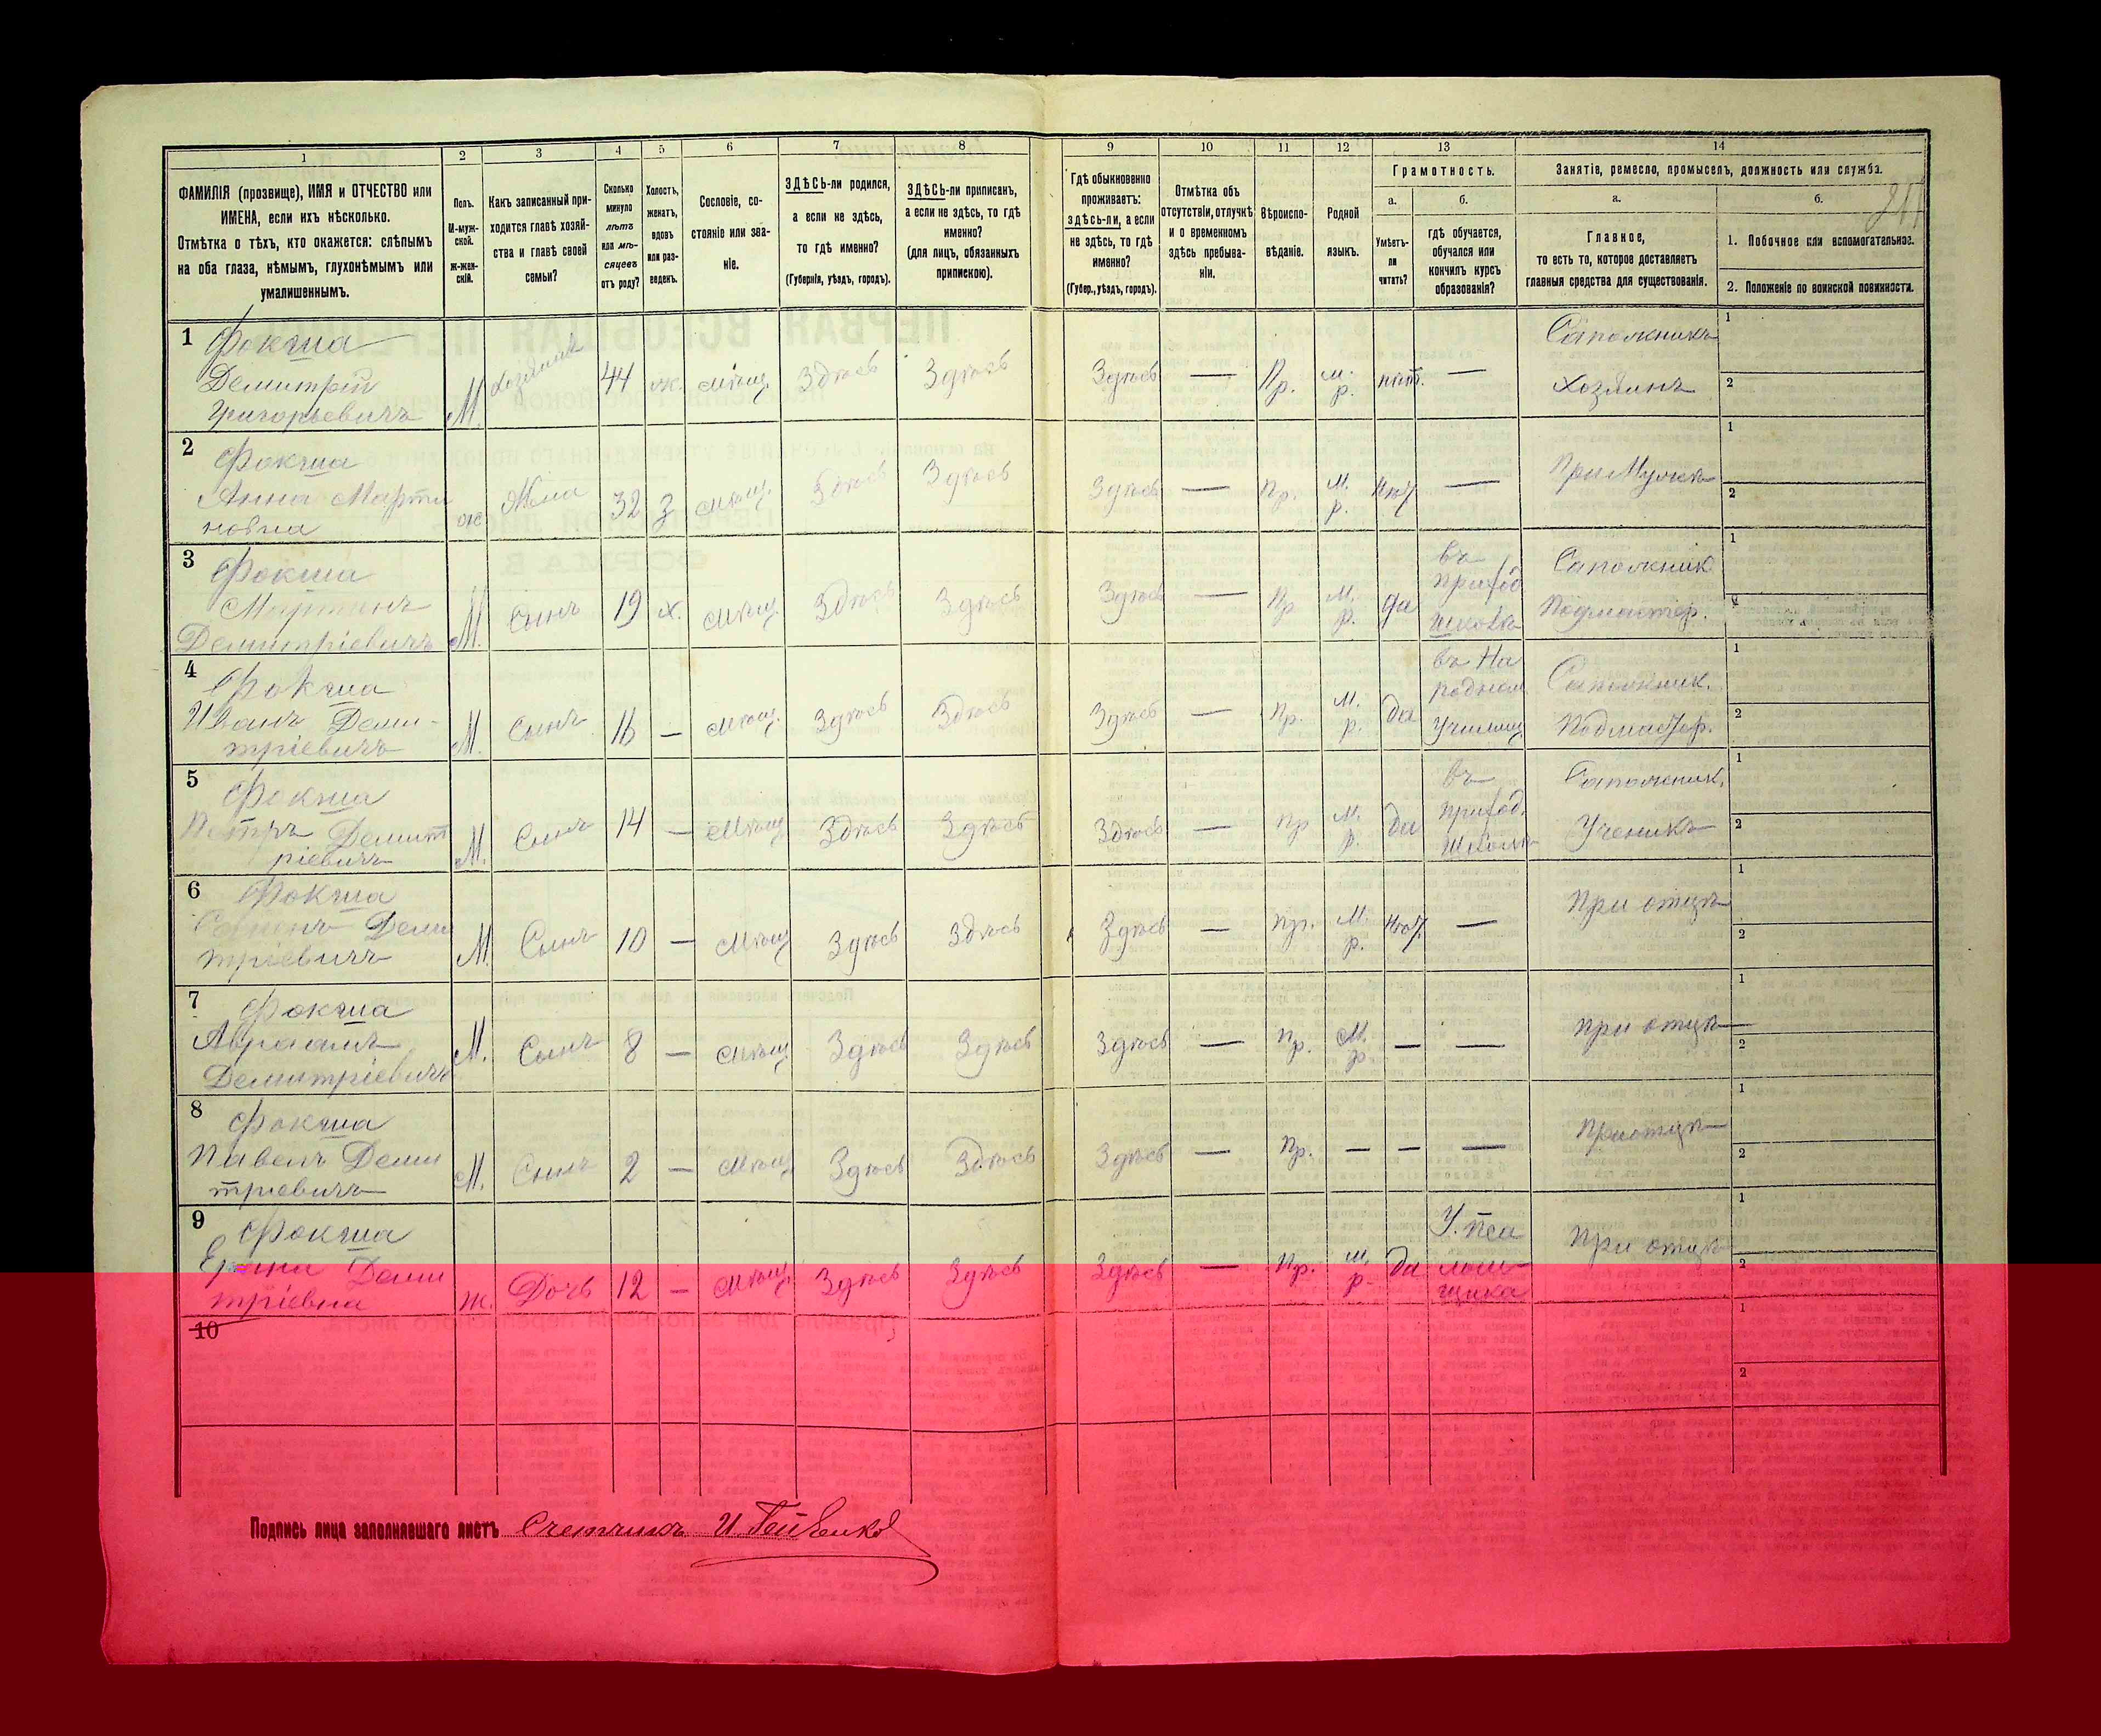 1 2 3 4 5 6 7 8 9 10 11 12 13 14
ФАМИЛІЯ (прозвище), ИМЯ и ОТЧЕСТВО или
ИМЕНА, если ихъ нѣсколько.
Отмѣтка о тѣхъ, кто окажется: слѣпымъ
на оба глаза, нѣмымъ, глухонѣмымъ или
умалишеннымъ.
Полъ.
М-муж-
ской.
Ж-жен-
скій.
Какъ записанный при-
ходится главѣ хозяй-
ства и главѣ своей
семьи?
Сколько
минуло
лѣтъ
или мѣ-
сяцевъ
отъ роду?
Холостъ,
женатъ,
вдовъ
или раз-
веденъ.
Сословіе, со-
стояніе или зва-
ніе.
ЗДѢСЬ-ли родился,
а если не здѣсь,
то гдѣ именно?
(Губернія, уѣздъ, городъ).
ЗДѢСЬ-ли приписанъ,
а если не здѣсь, то гдѣ
именно?
(для лицъ, обязанныхъ
припискою).
Гдѣ обыкновенно
проживаетъ:
здѣсь-ли, а если
не здѣсь, то гдѣ
именно?
(Губер., уѣздъ, городъ).
Отмѣтка объ
отсутствіи, отлучкѣ
и о временномъ
здѣсь пребыва-
ніи.
Вѣроиспо-
вѣданіе.
Родной
языкъ.
Грамотность.
а.
Умѣетъ-
ли
читать?
б.
гдѣ обучается,
обучался или
кончилъ курсъ
образованія?
Занятіе, ремесло, промыселъ, должность или служба.
а.
Главное,
то есть то, которое доставляетъ
главныя средства для существованія.
б.
1. Побочное или вспомогательное.
2. Положеніе по воинской повинности.
1 Фокша Сапожникъ 1
Демитрій М. Хозяинъ 44 ж. мѣщ. Здѣсь Здѣсь Здѣсь — Пр. м. р. нѣт. — Хозяинъ 2
Григорьевичъ
2 Фокша 1
Анна Марти ж Жена 32 З мѣщ. Здѣсь Здѣсь Здѣсь — Пр. М. р. Нѣт — При Мужѣ 2
новна
3 Фокша въ Сапожник 1
Мартинъ М. Сынъ 19 х. мѣщ. Здѣсь Здѣсь Здѣсь — Пр М. р. да приход Подмастер.
Демитріевичъ школѣ
4 Фокша въ На Сапожник. 1
Иванъ Деми- М. Сынъ 16 — мѣщ. Здѣсь Здѣсь Здѣсь — Пр. М. р. да родном Подмастер. 2
тріевичъ Училищ
5 Фокша въ Сапожник. 1
Петръ Демит М. Сынъ 14 — мѣщ Здѣсь Здѣсь Здѣсь — Пр М. р. да приход. Ученикъ 2
ріевичъ школѣ
6 Фокша 1
Деми М. Сынъ 10 — мѣщ Здѣсь Здѣсь Здѣсь — Пр. М. р. Нѣт. — При отцѣ 2
тріевичъ
7 Фокша 1
Авраамъ М. Сынъ 8 — мѣщ Здѣсь Здѣсь Здѣсь — Пр. М. р. — — при отцѣ 2
Демитріевичъ
8 Фокша 1
Павелъ Деми М. Сынъ 2 — мѣщ Здѣсь Здѣсь Здѣсь — Пр. — — — При отцѣ 2
тріевичъ
9 Фокша У. Пса 1
Деми Ж. Дочь 12 — мѣщ. Здѣсь Здѣсь Здѣсь — Пр. м. р. да лом- При отцѣ 2
тріевна щика
10 1
2
Подпись лица заполнявшаго листъ Счетчикъ И.